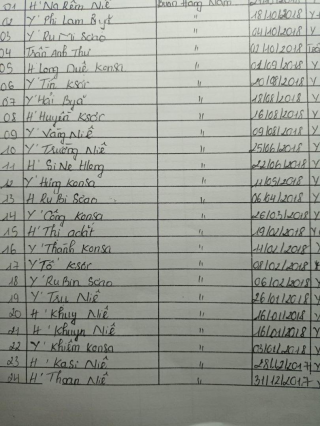 01 H' Na Rêm Niê Buôn Hằng Năm
02 Y' Phi Lam Byă " 18/10/2018 Y
03 Y' Ru Mi Scao " 04/10/2018 Y
04 Trần Anh Thư " 02/10/2018
05 H Long Duê Konsa " 01/09/2018 Y
06 Y' Tin Ksơr " 20/08/2018 Y
07 Y' Hái Byă " 18/08/2018 Y
08 H' Huyền Ksơr " 16/08/2018 Y
09 Y' Văng Niê " 09/08/2018 Y
10 Y' Trường Niê " 25/06/2018 Y
11 H' Si Ne Hlong " 22/06/2018 Y
12 Y' Hưng Konsa " 11/05/2018 Y
13 H Ru Bi Scao " 06/04/2018 Y
14 Y' Công Konsa " 26/03/2018 Y
15 H' Thi " 19/02/2018 Y
16 Y' Thành Konsa " 11/02/2018 Y
17 Y' Tô Ksơr " 08/02/2018 Y
18 Y' Ru Bin Scao " 06/02/2018 Y
19 Y' Tru Niê " 26/01/2018 Y
20 H' Khuy Niê " 16/01/2018 Y
21 H' Khuyn Niê " 16/01/2018 Y
22 Y' Khiêm Konsa " 03/01/2018 Y
23 H' Kasi Niê " 28/12/2017 Y
24 H' Thoan Niê " 31/12/2017 Y